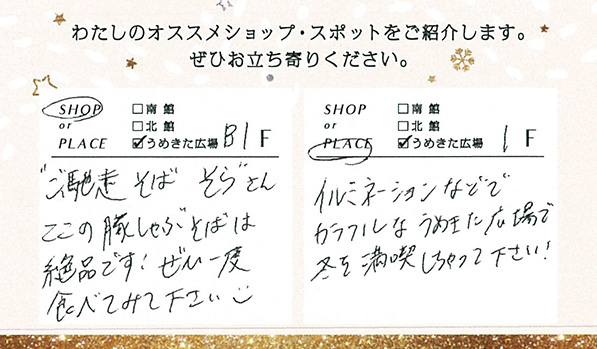 わたしのオススメショップ・スポットをご紹介します。
ぜひお立ち寄りください。
SHOP
or
PLACE
□南館
□北館
☑うめきた広場 B1F
"ご馳走そば そら"さん
ここの豚しゃぶそばは
絶品です！ぜひ一度
食べてみて下さい
SHOP
or
PLACE
□南館
□北館
☑うめきた広場 1F
イルミネーションなどで
カラフルなうめきた広場で
冬を満喫しちゃって下さい！